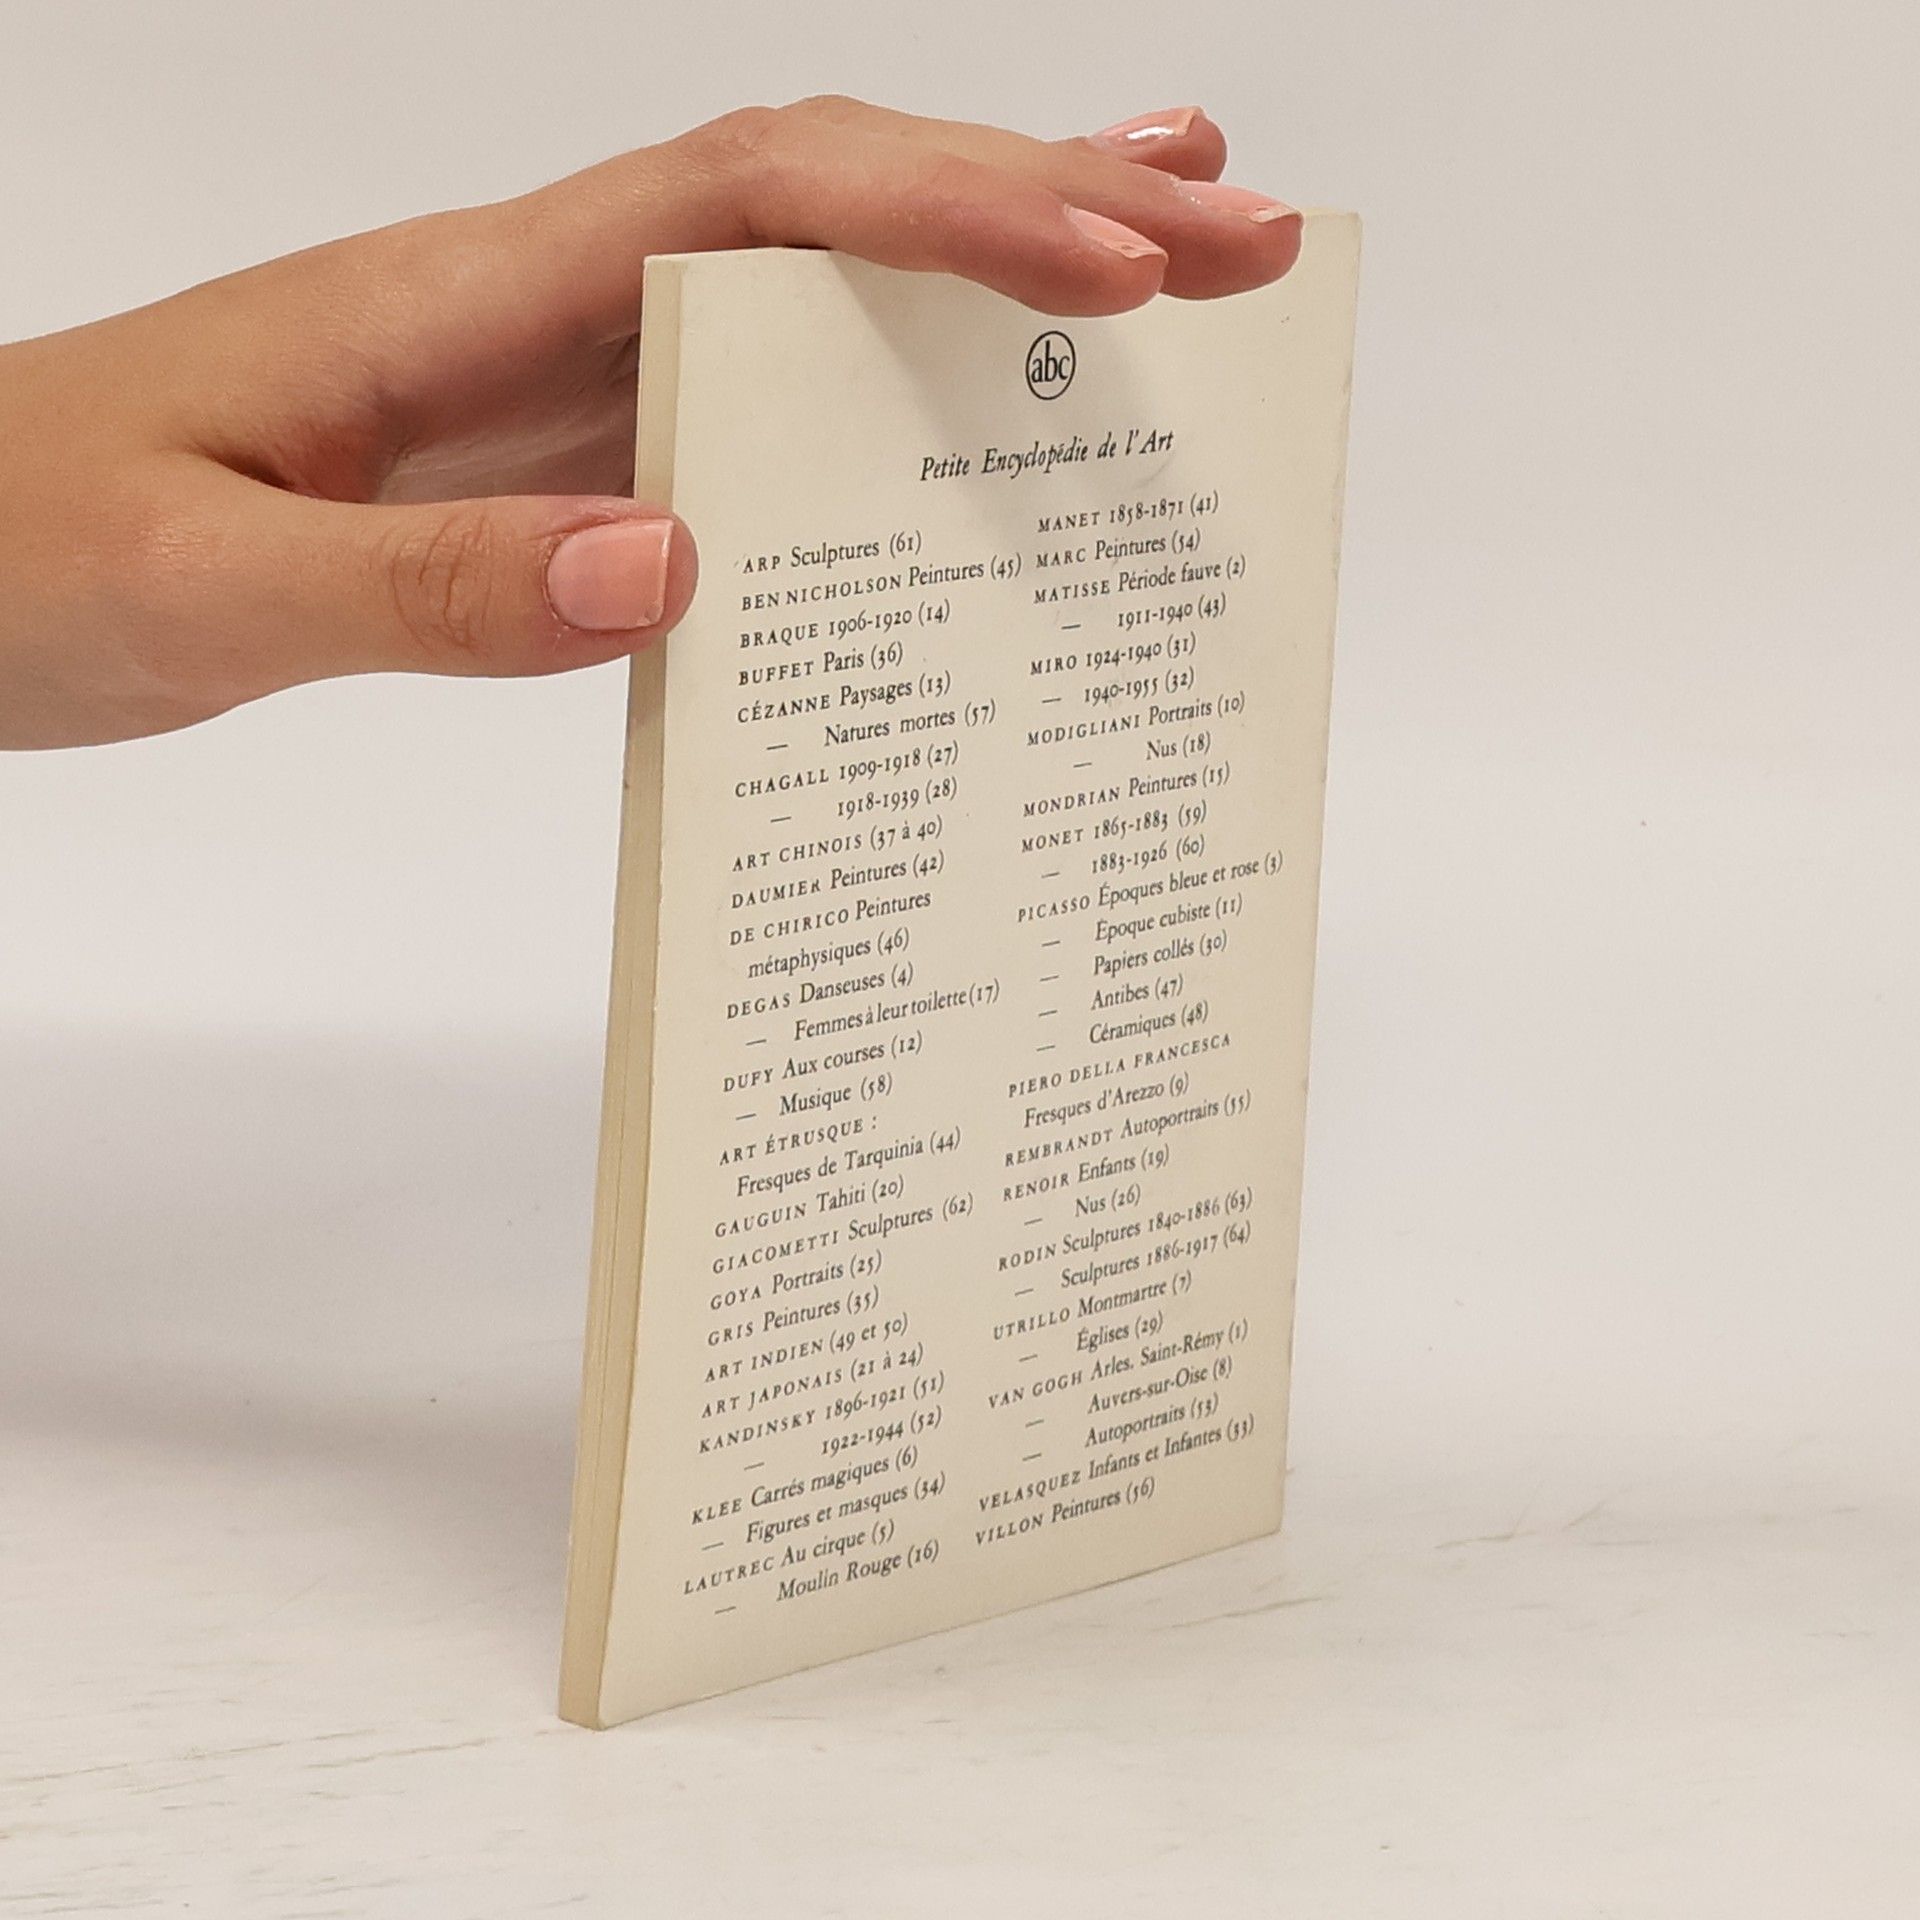 abc
Petite Encyclopédie de l'Art
ARP Sculptures (61)
BEN NICHOLSON Peintures (45)
BRAQUE 1906-1920 (14)
BUFFET Paris (36)
CÉZANNE Paysages (13)
— Natures mortes (57)
CHAGALL 1909-1918 (27)
— 1918-1939 (28)
ART CHINOIS (37 à 40)
DAUMIER Peintures (42)
DE CHIRICO Peintures
métaphysiques (46)
DEGAS Danseuses (4)
— Femmes à leur toilette (17)
DUFY Aux courses (12)
— Musique (58)
ART ÉTRUSQUE :
Fresques de Tarquinia (44)
GAUGUIN Tahiti (20)
GIACOMETTI Sculptures (62)
GOYA Portraits (25)
GRIS Peintures (35)
ART INDIEN (49 et 50)
ART JAPONAIS (21 à 24)
KANDINSKY 1896-1921 (51)
— 1922-1944 (52)
KLEE Carrés magiques (6)
— Figures et masques (34)
LAUTREC Au cirque (5)
— Moulin Rouge (16)
MANET 1858-1871 (41)
MARC Peintures (54)
MATISSE Période fauve (2)
— 1911-1940 (43)
MIRO 1924-1940 (31)
— 1940-1955 (32)
MODIGLIANI Portraits (10)
— Nus (18)
MONDRIAN Peintures (15)
MONET 1865-1883 (59)
— 1883-1926 (60)
PICASSO Époques bleue et rose (3)
— Époque cubiste (11)
— Papiers collés (30)
— Antibes (47)
— Céramiques (48)
PIERO DELLA FRANCESCA
Fresques d'Arezzo (9)
REMBRANDT Autoportraits (55)
RENOIR Enfants (19)
— Nus (26)
RODIN Sculptures 1840-1886 (63)
— Sculptures 1886-1917 (64)
UTRILLO Montmartre (7)
— Églises (29)
VAN GOGH Arles. Saint-Rémy (1)
— Auvers-sur-Oise (8)
— Autoportraits (53)
VELASQUEZ Infants et Infantes (33)
VILLON Peintures (56)